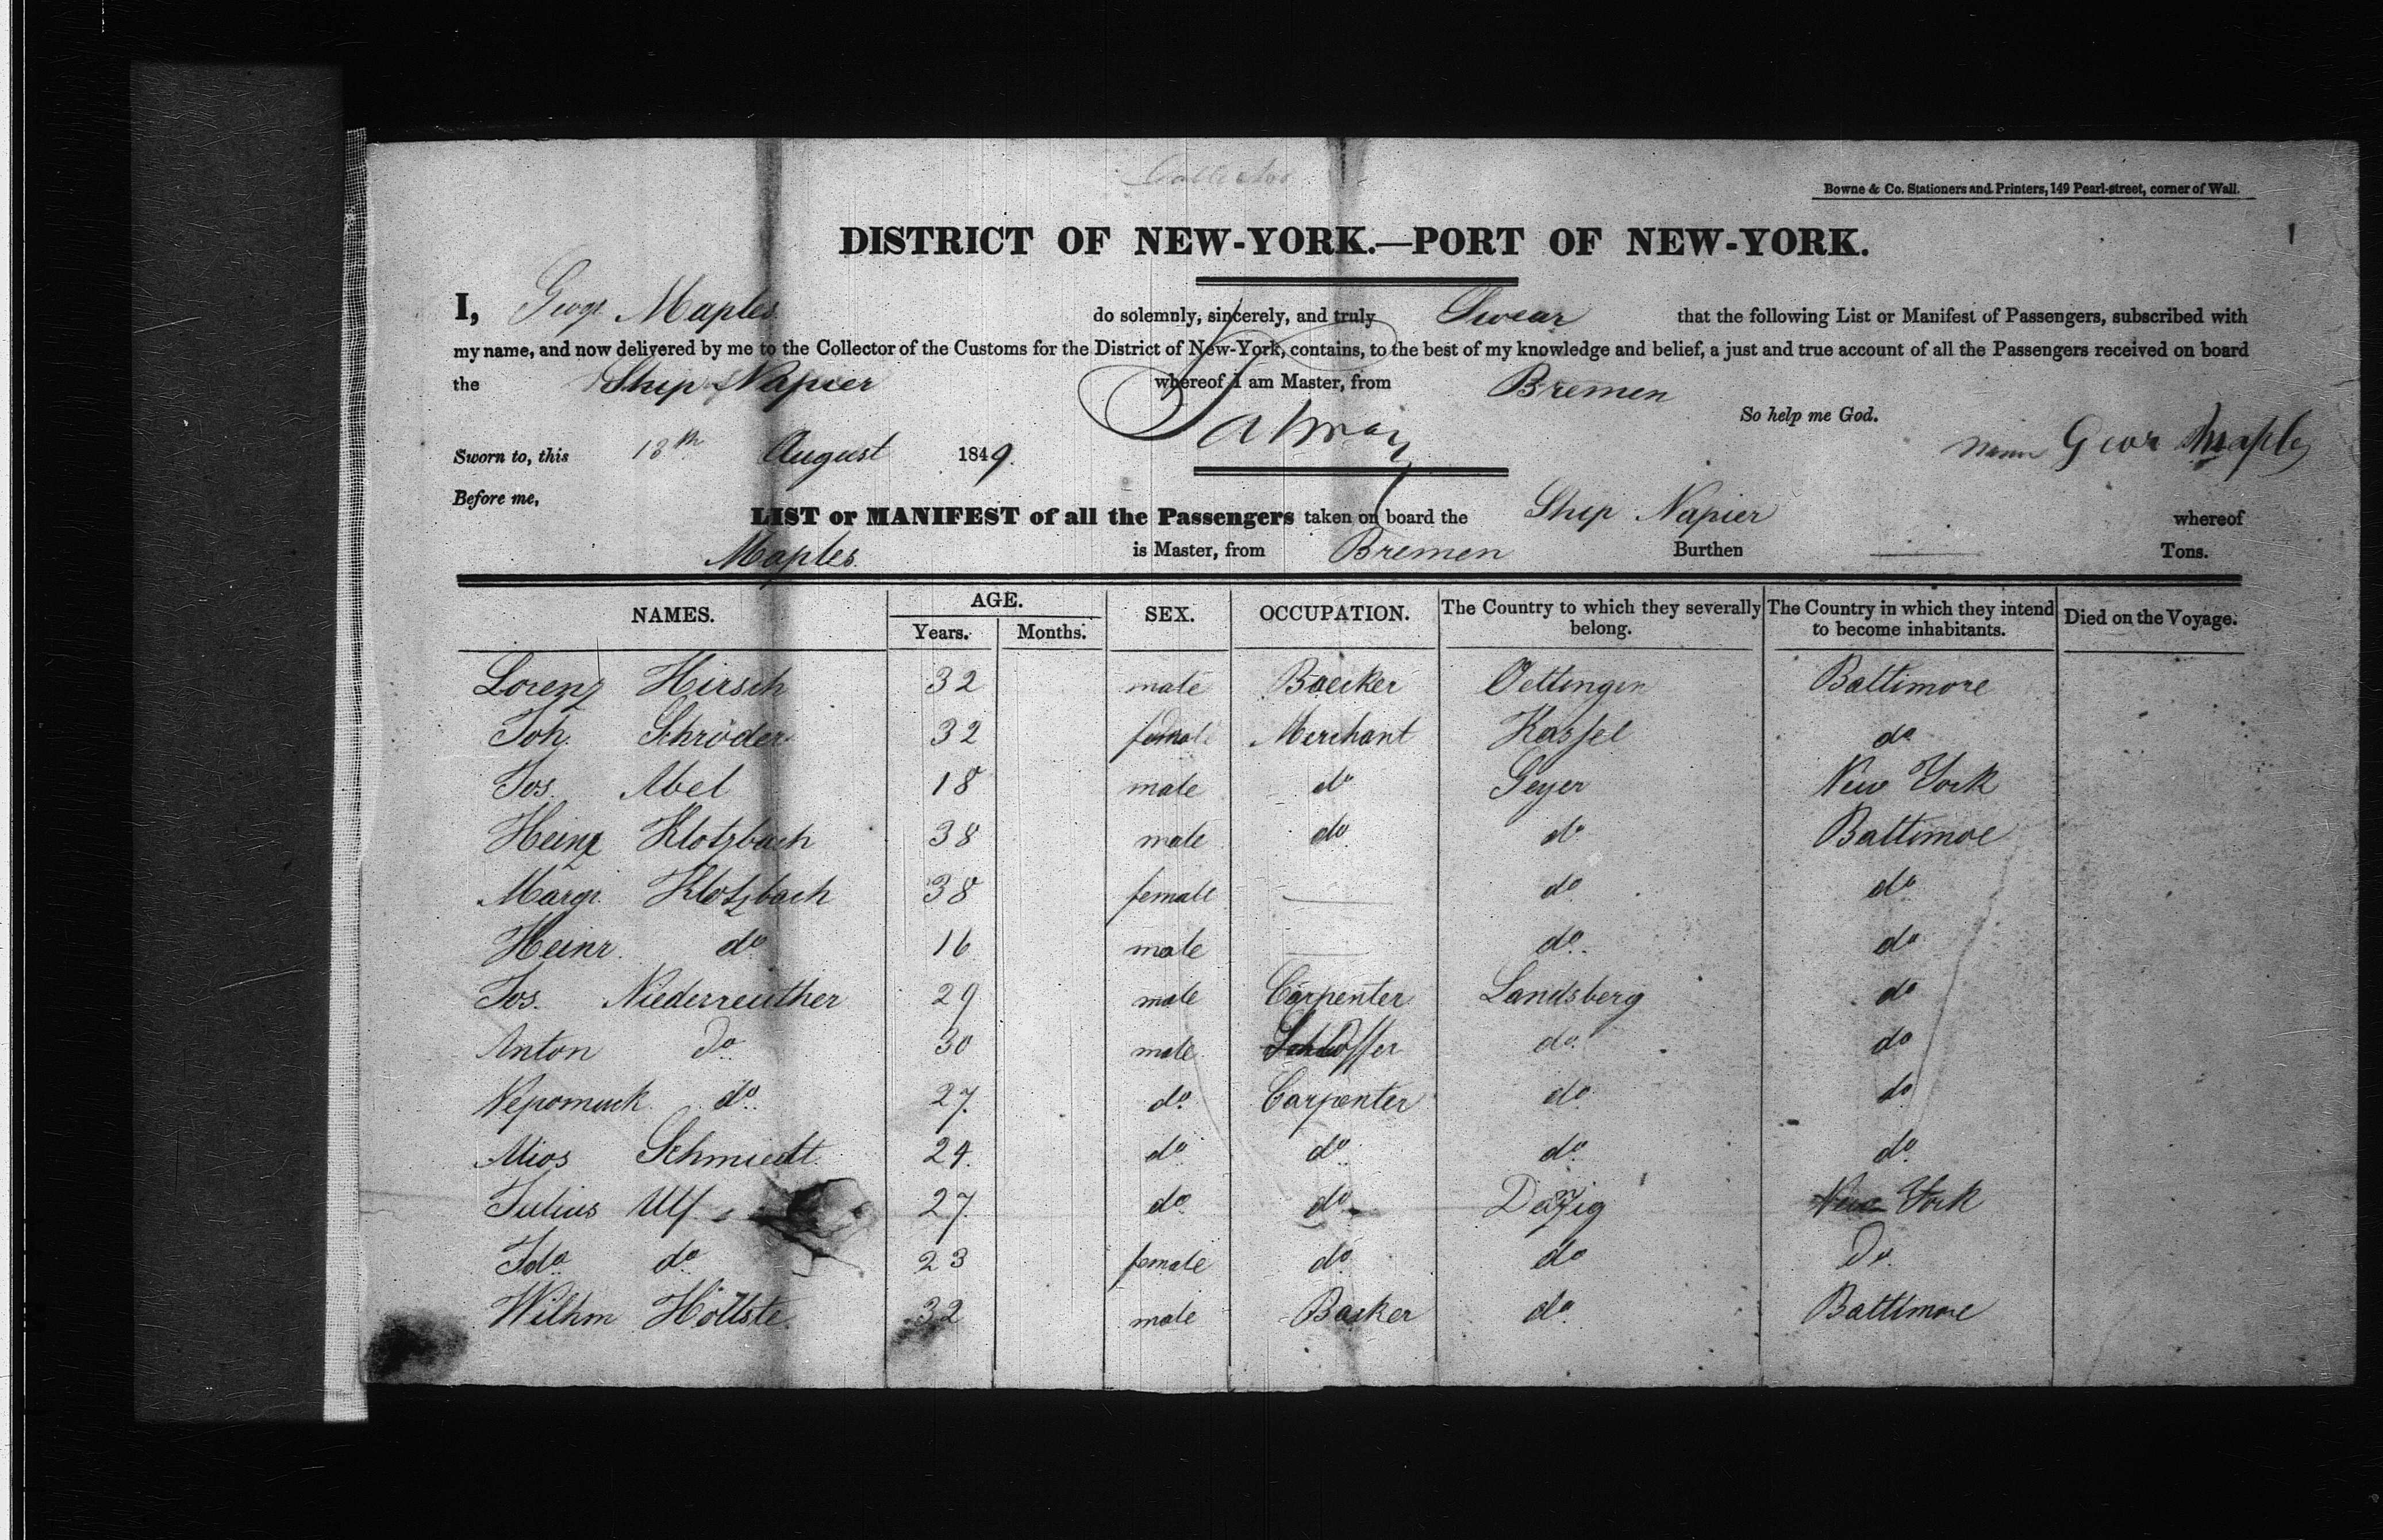 Collector
Bowne & Co. Stationers and Printers, 149 Pearl-street, corner of Wall.
1
DISTRICT OF NEW-YORK.—PORT OF NEW-YORK.
I, Geogr. Maples do solemnly, sincerely, and truly Swear that the following List or Manifest of Passengers, subscribed with
my name, and now delivered by me to the Collector of the Customs for the District of New-York, contains, to the best of my knowledge and belief, a just and true account of all the Passengers received on board
the Ship Napier whereof I am Master, from Bremen
So help me God.
Sworn to, this 18th August 1849. Geor Maples
Before me,
LIST or MANIFEST of all the Passengers taken on board the Ship Napier whereof
Maples. is Master, from Bremen Burthen —— Tons.
NAMES. AGE. SEX. OCCUPATION. The Country to which they severally belong. The Country in which they intend to become inhabitants. Died on the Voyage.
Years. Months.
Lorenz Hirsch 32 male Baecker Oettingen Baltimore
Joh. Schröder 32 female Merchant Kassel do
Jos. Abel 18 male do Geyer New York
Heinz Klotzbach 38 male do do Baltimoe
Margr. Klotzbach 38 female —— do do
Heinr. do 16 male —— do. do
Jos. Niederreuther 29 male Carpenter Landsberg do
Anton do 30 male Schlosser do. do
Nepomuck do. 27. do. Carpenter do do
Alios Schmiedt. 24. do do do do.
Julius Ulf 27. do do Danzig New York
Ida do 23 female do do do.
Wilhm Höltste. 32 male Baeker do. Baltimore